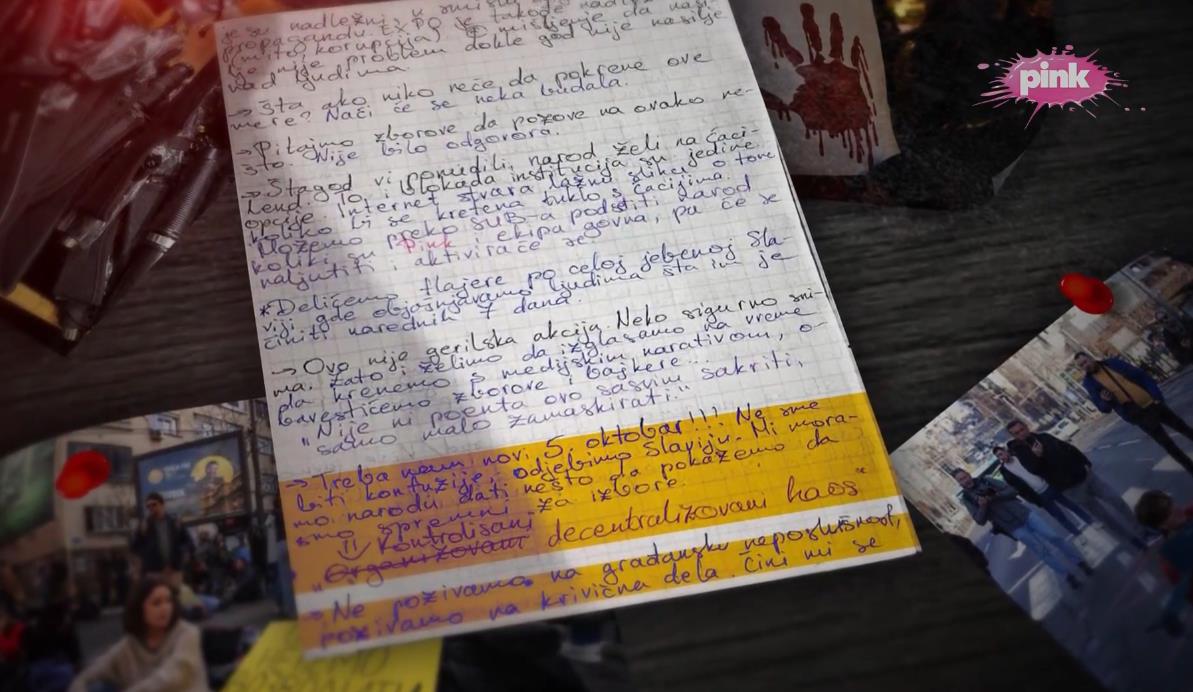 nadležni u smislu
je su
propagandu. EXPO je takođe nadležni
(mito, korupcija) mišljenje da naši
to nije problem dokle god nije nasilje
nad ljudima.
→ Šta ako niko neće da pokrene ove
mere? Naći će se neka budala.
→ Pitajmo zborove da pozove na ovako ne-
što. Nije bilo odgovora.
→ Štagod vi ponudili, narod želi na Ćaci-
lend. To i blokada institucija su jedine
opcije. Internet stvara lažnu sliku o tome
koliko bi se kretena tuklo s ćacijima.
Možemo preko SUB-a podstiti narod
koliki su Pink i ekipa govna, pa će se
naljutiti i aktiviraće se.
*Delićemo flajere po celoj jebenoj Sla-
viji gde objašnjavamo ljudima šta im je
činiti narednih 7 dana.
→ Ovo nije gerilska akcija. Neko sigurno sni-
ma. Zato i želimo da izglasamo na vreme
da krenemo s medijskim narativom, o-
bavestićemo zborove i bajkere...
"Nije ni poenta ovo sasvim sakriti,
samo malo zamaskirati."
→ Treba nam novi 5. oktobar!!! Ne sme
biti konfuzije, odjebimo Slaviju. Mi mora-
mo narodu dati nešto da pokažemo da
smo spremni za izbore.
Kontrolisani
"Organizovani decentralizovani haos"
→ Ne pozivamo na građansku neposlušnost,
pozivamo na krivična dela. Čini mi se
pink